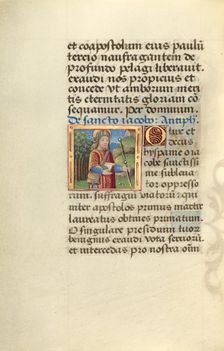 et coapostolum eius paulū
tercio naufragantem de
profundo pelagi liberavit
exaudi nos propicius et
concede vt amborum meri
tis eternitatis gloriam con
sequamur. Per dominum.
De sancto iacobo. Antiph̄.
O lux et
decus
hyspanie o ia
cobe sanctissi
me
oppresso
rum. suffragiū viatorū: qui
inter apostolos primus martir
laureatus obtines primatum.
O singulare presidium tuor̄
benignus exaudi vota servorū.
et intercedas pro nostra om̄i